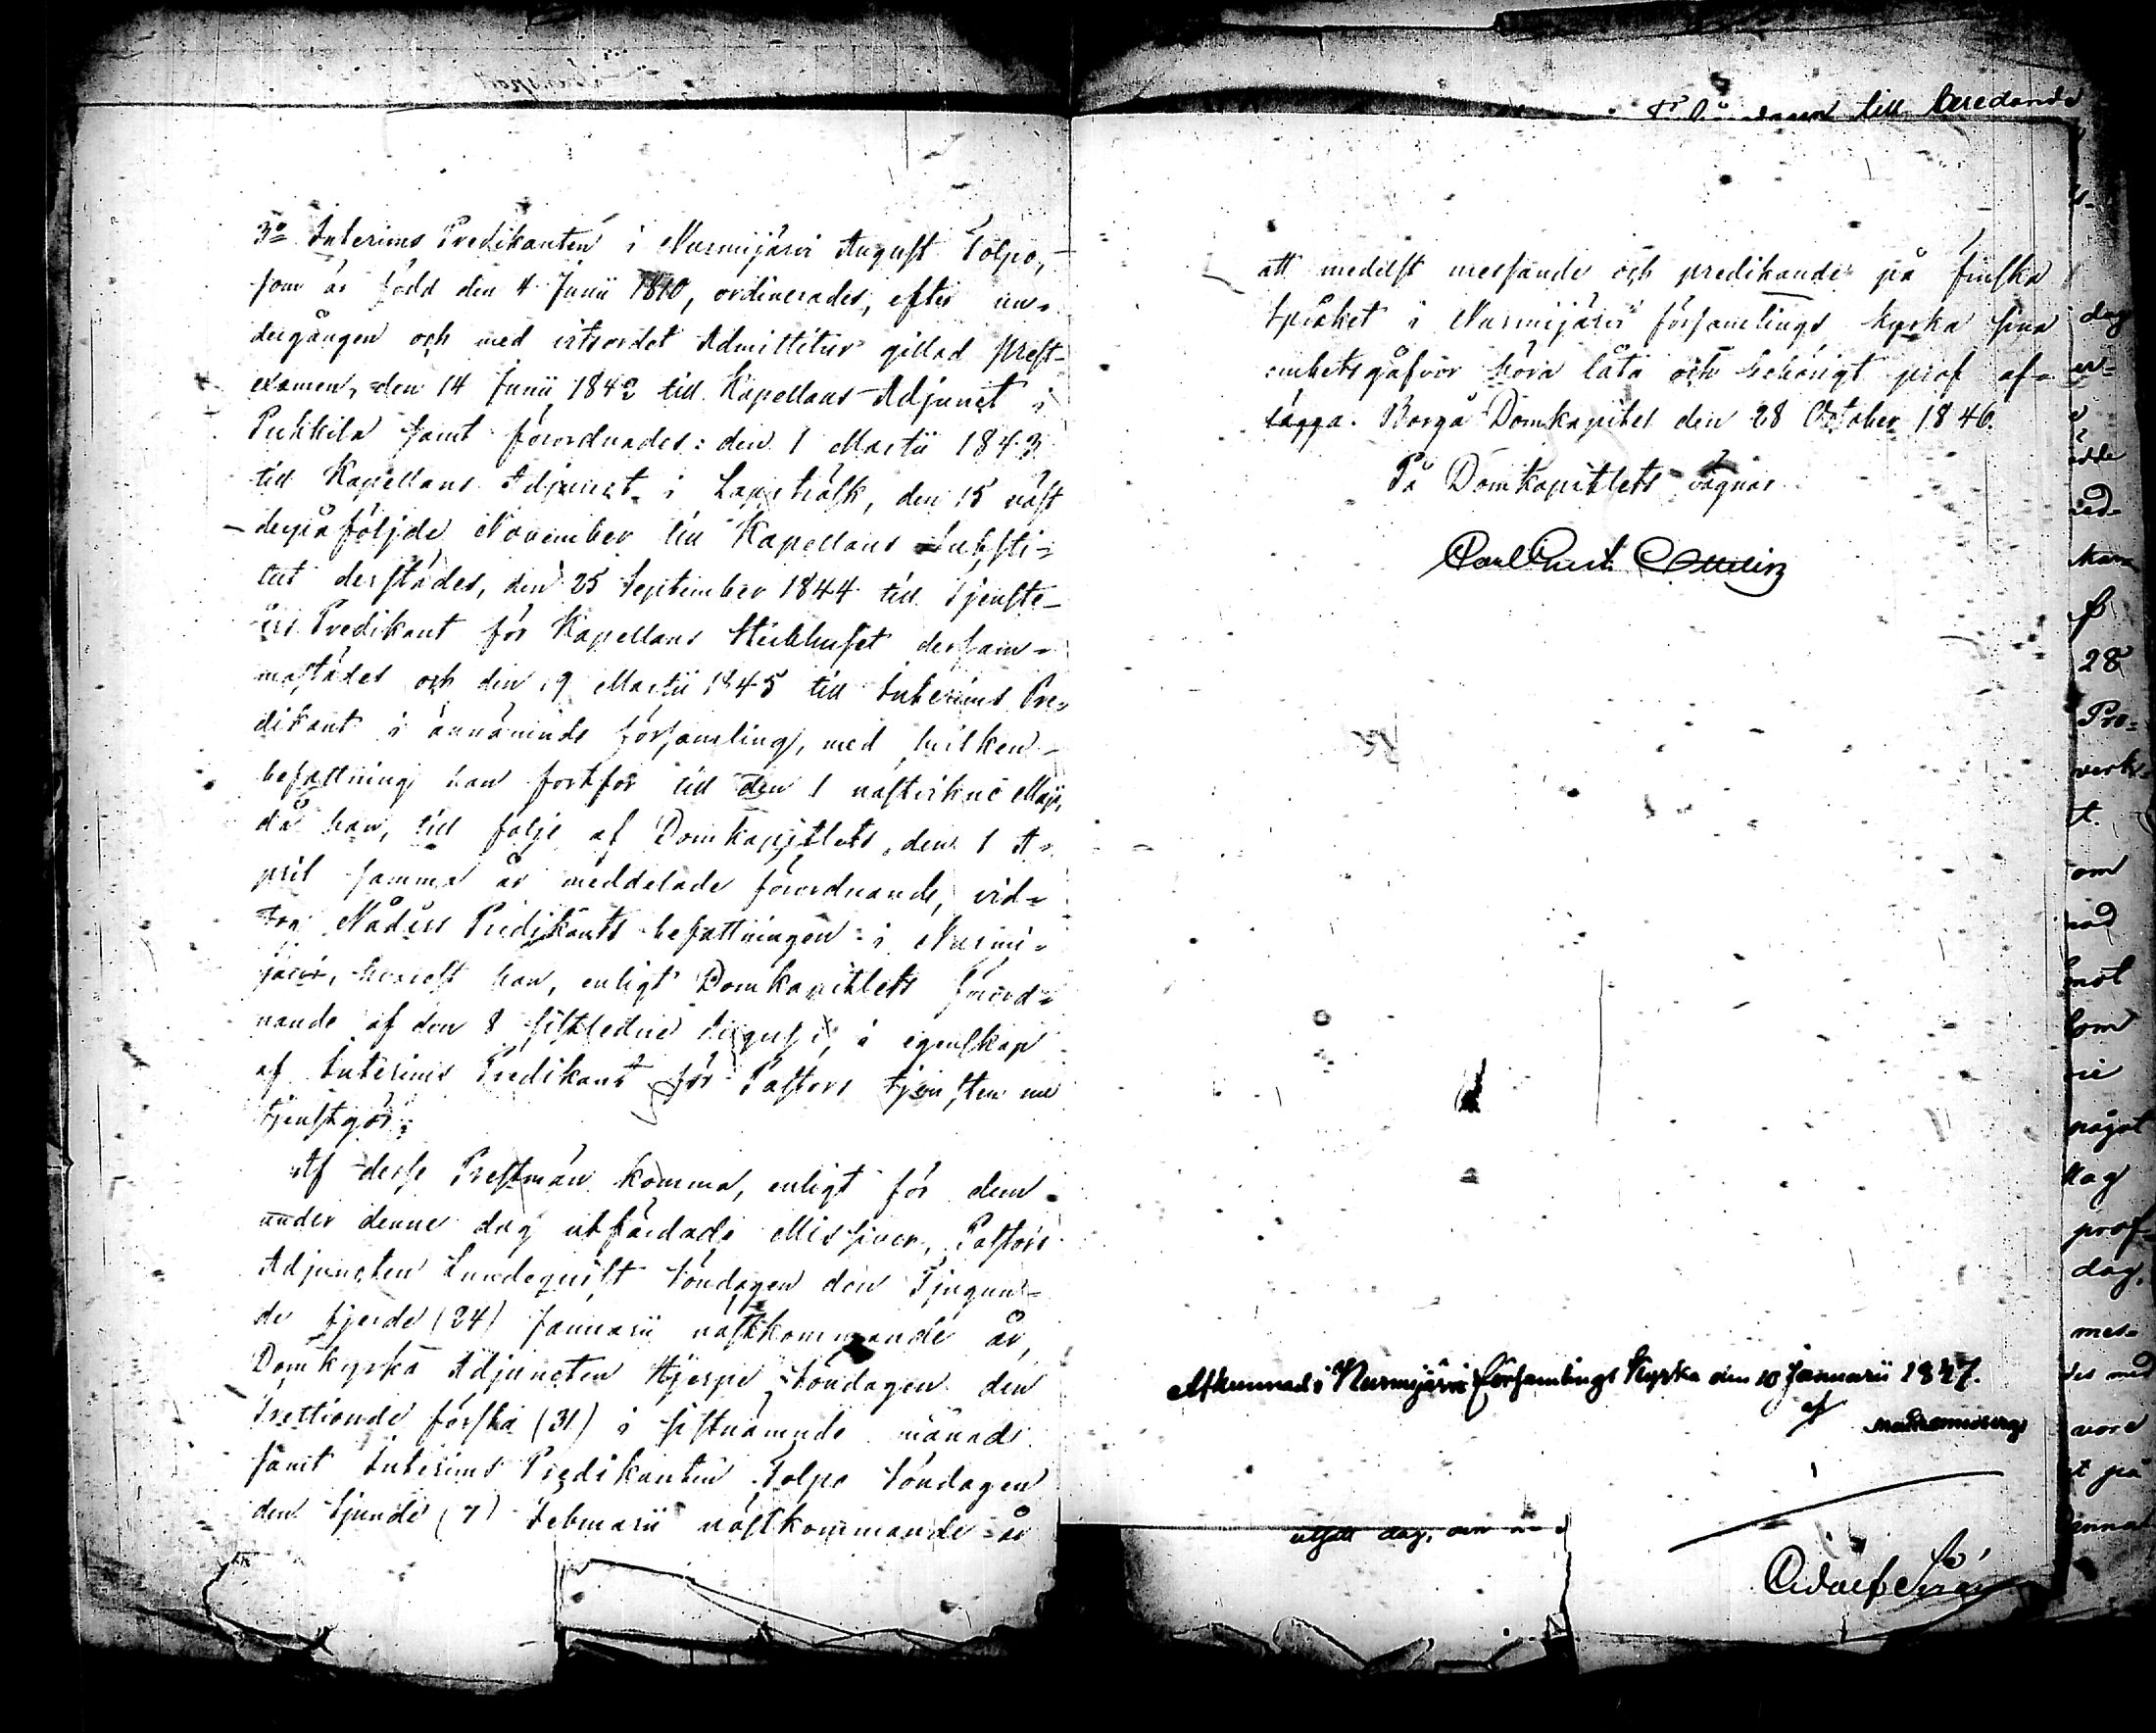 3o Interims Predikanten i Nurmijärvi August Tolpo,
som är född den 4 Junii 1810, ordinerades, efter un-
dergången och med vitsordet Admittitur gillad prest-
examen, den 14 Junii 1842 till Kapellans-Adjunct i
Pukkila samt förordnades: den 1 Martii 1843
till Kapellans Adjunct i Lappträsk, den 15 näst
derpåföljde November till Kapellans Substi-
tut derstädes, den 25 September 1844 till Tjenste-
års Predikant för Kapellans Sterbhuset dersam-
mastädes och den 19 Martii 1845 till Interims Pre-
dikant i ännämnde församling, med hvilken
befattning han fortfor till den 1 nästvikne Maji,
då han, till följe af Domkapitlets, den 1 A-
pril samma år meddelade förordnande, vid-
tog Nådårs Predikants befattningen i Nurmi-
järvi, hvarest han, enligt Domkapitlets förord-
nande af den 8 sistledne Augusti, i egenskap
af Interims Predikant för Pastors tjensten nu
tjenstgör.
Af desse Prestmän komma, enligt för dem
under denne dag utfärdade Missiver, Pastors
Adjuncten Lundequist Söndagen den Tjugun-
de fjerde (24) Januarii nästkommande år,
Domkyrko Adjuncten Hjerpe Söndagen den
Trettionde första (31) i sistnämnde månad
samt Interims Predikanten Tolpo Söndagen
den Sjunde (7) Februarii nästkommande år
till beredande
att medelst messande och predikande på finska
Språket i Nurmijärvi församlings kyrka sina
embetsgåfvor höra låta och behörigt prof af-
lägga. Borgå Domkapitel den 28 October 1846.
På Domkapitlets vägnar
Afkunnad i Nurmijärvi Församlings Kyrka den 10 Januarii 1847.
af
utsatt dag, om
dag
28
Pro-
verk-
t.
om
som
något
dag
prof-
dag,
mes-
des med
vore
t på